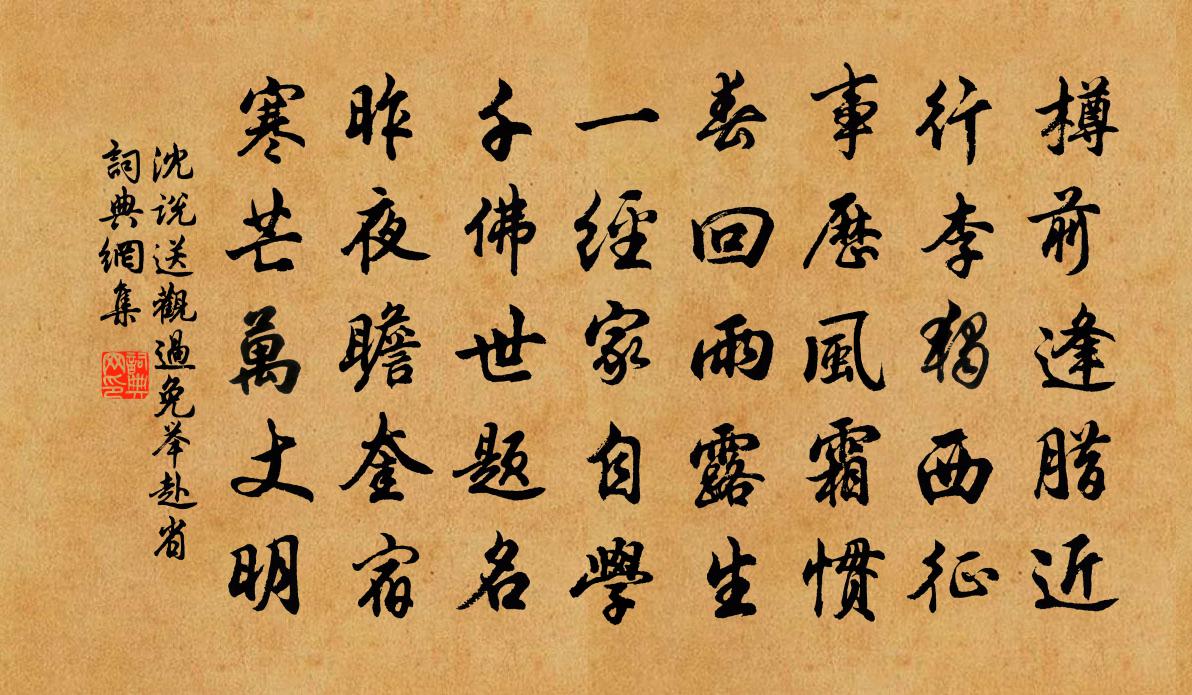 樽前逢腊近
行李獨西征
事歷風霜慣
春回雨露生
一經家自學
千佛世題名
昨夜瞻奎宿
寒芒萬丈明
沈说送觀過免举赴省
詞典網集
詞典网印